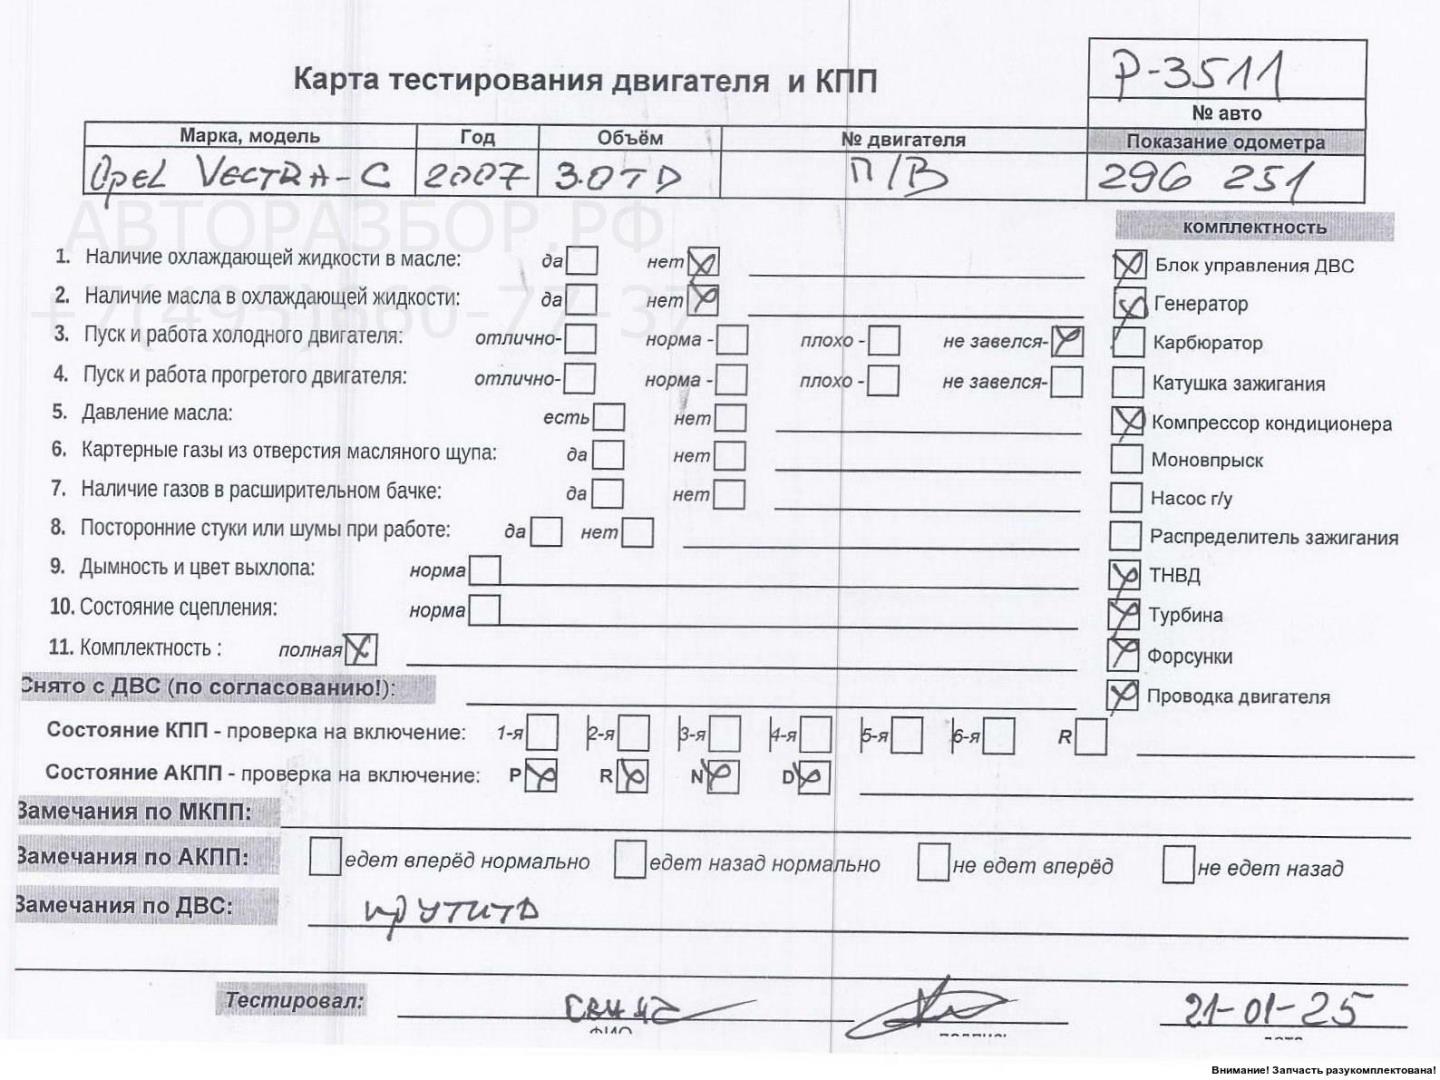 Карта тестирования двигателя и КПП
P-3511
№ авто
Марка, модель Год Объём № двигателя Показание одометра
Opel VECTRA-C 2007 3.0TD П/В 296 251
АВТОРАЗБОР.РФ
+7(495)660-77-37
комплектность
1. Наличие охлаждающей жидкости в масле: да нет
Блок управления ДВС
2. Наличие масла в охлаждающей жидкости: да нет
Генератор
3. Пуск и работа холодного двигателя: отлично- норма - плохо - не завелся-
Карбюратор
4. Пуск и работа прогретого двигателя: отлично- норма - плохо - не завелся-
Катушка зажигания
5. Давление масла: есть нет
Компрессор кондиционера
6. Картерные газы из отверстия масляного щупа: да нет
Моновпрыск
7. Наличие газов в расширительном бачке: да нет
Насос г/у
8. Посторонние стуки или шумы при работе: да нет
Распределитель зажигания
9. Дымность и цвет выхлопа: норма
ТНВД
10. Состояние сцепления: норма
Турбина
11. Комплектность : полная
Форсунки
Снято с ДВС (по согласованию!):
Проводка двигателя
Состояние КПП - проверка на включение: 1-я 2-я 3-я 4-я 5-я 6-я R
Состояние АКПП - проверка на включение: P R N D
Замечания по МКПП:
Замечания по АКПП: едет вперёд нормально едет назад нормально не едет вперёд не едет назад
Замечания по ДВС: крутить
Тестировал: 21-01-25
ФИО подпись дата
Внимание! Запчасть разукомплектована!